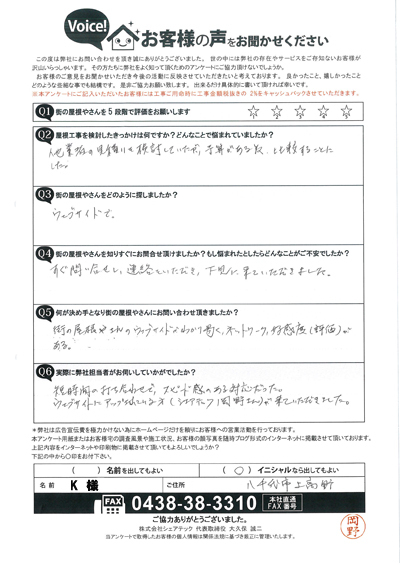 Voice! お客様の声をお聞かせください
この度は弊社にお問い合わせを頂き誠にありがとうございました。世の中には弊社の存在やサービスをご存知ないお客様が
沢山いらっしゃいます。その方たちに弊社をよく知って頂くためのアンケートにご協力頂けないでしょうか。
お客様のご意見をお聞かせいただき今後の活動に反映させていただきたいと考えております。良かったこと、嬉しかったこと
どのような些細な事でも結構です。是非ご協力お願い致します。出来るだけ具体的に書いて頂ければ幸いです。
※本アンケートにご記入いただいたお客様には工事ご契約前に工事金額税抜きの 2%をキャッシュバックさせていただきます。
Q1 街の屋根やさんを5段階で評価をお願いします
☆ ☆ ☆ ☆ ☆
Q2 屋根工事を検討したきっかけは何ですか？どんなことで悩まれていましたか？
他業者の見積りを検討していたが、
した。
Q3 街の屋根やさんをどのように探しましたか？
ウェブサイトで。
Q4 街の屋根やさんを知りすぐにお問合せ頂けましたか？もし悩まれたとしたらどんなことがご不安でしたか？
すぐ問い合せし、連絡をいただき、下見に来ていただきました。
Q5 何が決め手となり街の屋根やさんにお問い合わせ頂きましたか？
街の屋根やさんのウェブサイトがわかり易く、ネットワーク、好感度(評価)が
ある。
Q6 実際に弊社担当者がお伺いしていかがでしたか？
短時間の打ち合わせで、スピード感のある対応だった。
ウェブサイトにアップされている方(シェアテック岡野さん)が来ていただきました。
＊弊社は広告宣伝費を極力かけない為にホームページだけを頼りにお客様への営業活動を行っております。
本アンケート用紙またはお客様宅の調査風景や施工状況、お客様の顔写真を随時ブログ形式のインターネットに掲載させて頂いております。
上記内容をインターネットや印刷物に掲載させて頂いてもよろしいでしょうか？
下記の中から〇印をお付下さい。
(　) 名前を出してもよい (○) イニシャルなら出してもよい
名前 K 様 ご住所 八千代市上高野
FAX 0438-38-3310 本社直通 FAX番号
ご協力ありがとうございました。
株式会社シェアテック 代表取締役 大久保 誠二
当アンケートで取得したお客様の個人情報は関係法規に基づき厳正に管理いたします。
岡野